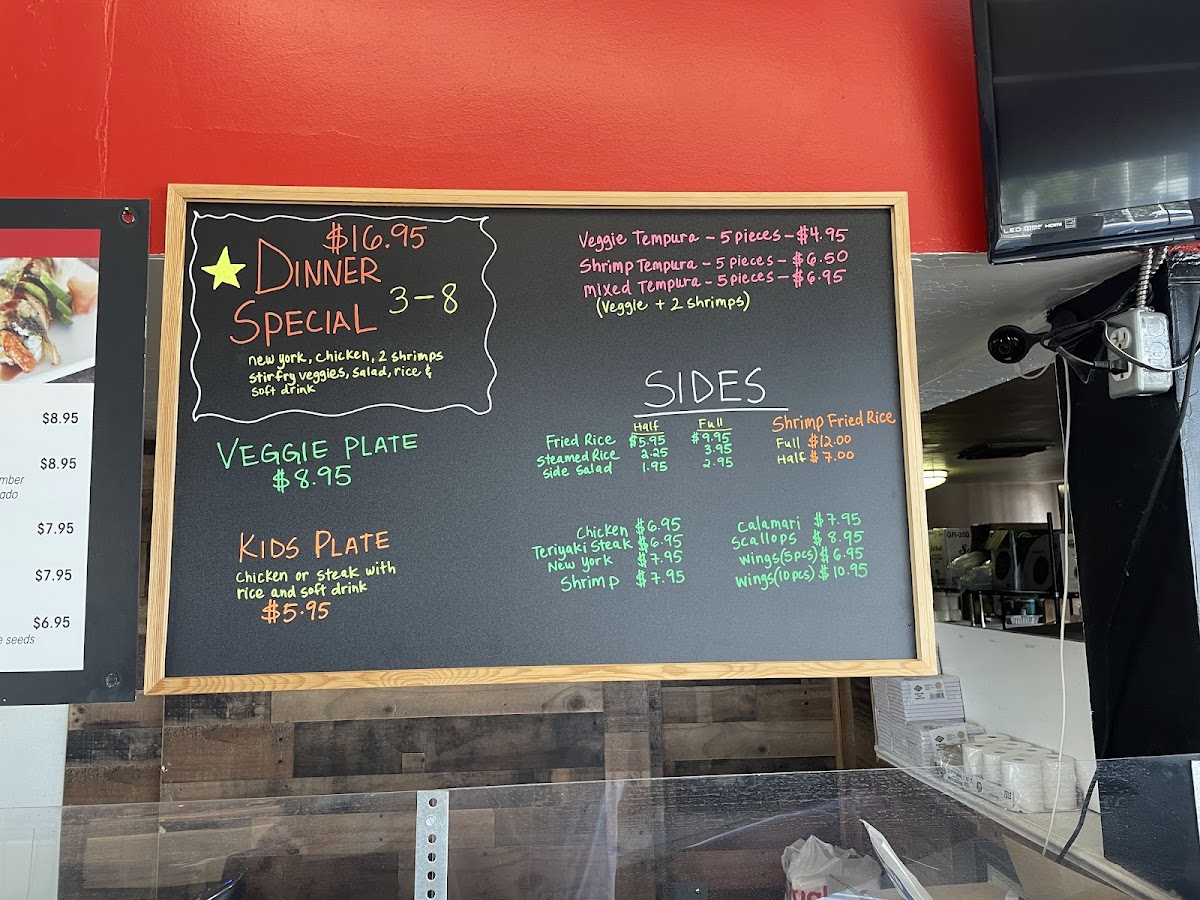 $16.95
DINNER
SPECIAL 3-8
new york, chicken, 2 shrimps
stirfry veggies, salad, rice &
soft drink
VEGGIE PLATE
$8.95
KIDS PLATE
chicken or steak with
rice and soft drink
$5.95
Veggie Tempura - 5 pieces - $4.95
Shrimp Tempura - 5 pieces - $6.50
mixed Tempura - 5 pieces - $6.95
(Veggie + 2 shrimps)
SIDES
Half Full
Fried Rice $5.95 $9.95
Steamed Rice 2.25 3.95
Side Salad 1.95 2.95
Shrimp Fried Rice
Full $12.00
Half $7.00
Chicken $6.95
Teriyaki Steak $6.95
New York $7.95
Shrimp $7.95
Calamari $7.95
Scallops $8.95
wings(5pcs) $6.95
wings(10pcs) $10.95
$8.95
$8.95
mber
ado
$7.95
$7.95
$6.95
e seeds
LED HDMI